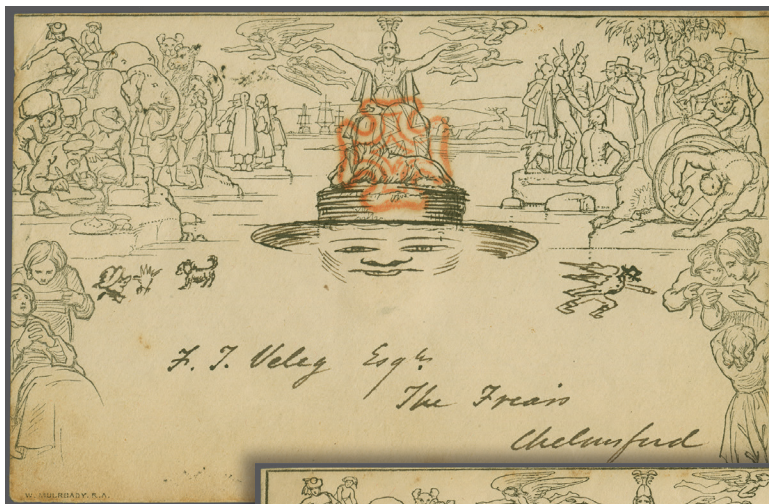 F. T. Veley Esqre
The Friars
Chelmsford
W. MULREADY. R.A.